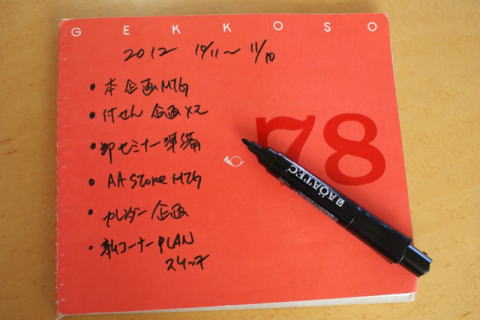 GEKKOSO
2012 10/11〜11/10
• 本企画MTG
• 付せん企画メモ
• 卸セミナー準備
• AA STONE MTG
• カレンダー企画
• 新コーナーPLAN
スケッチ
78